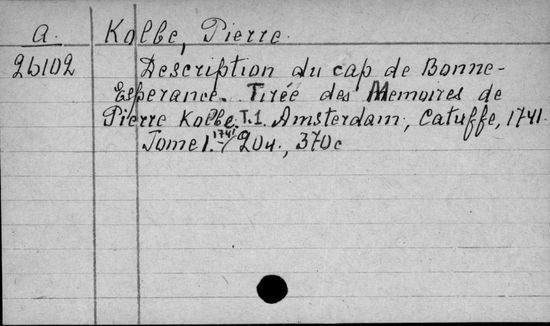 a. Kolbe, Pierre.
26102 Description du cap de Bonne-
Esperance. Tirée des Memoires de
Pierre Kolbe. T.1. Amsterdam, Catuffe, 1741.
Tome 1. 1741.